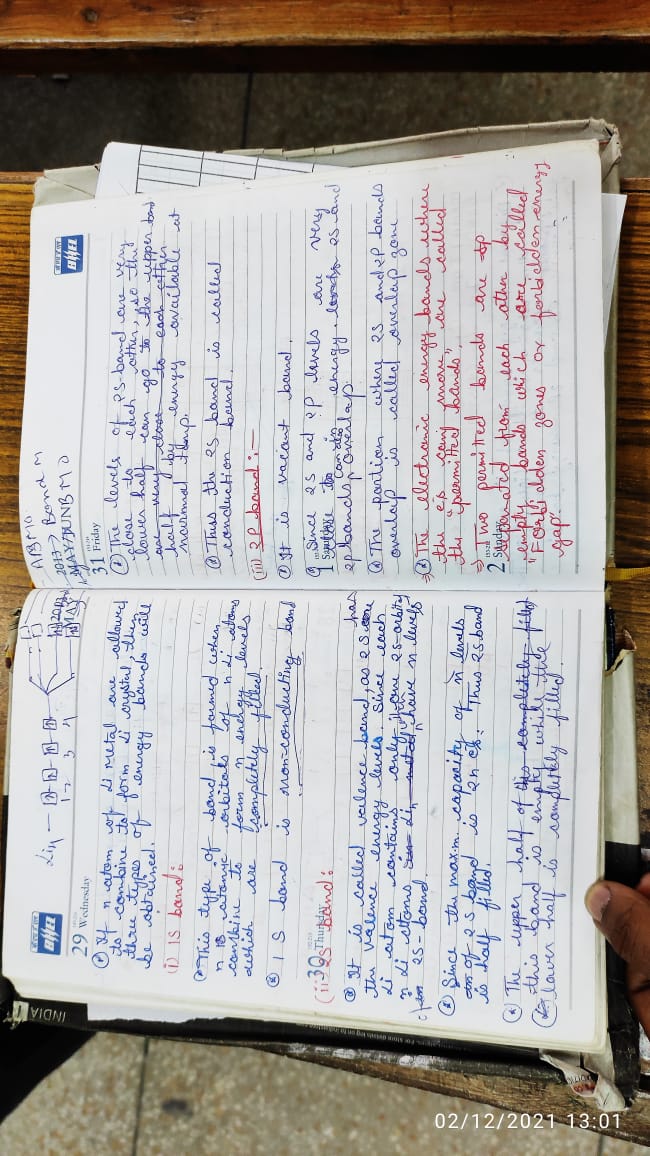 Lin —
1 2 3 4
BHEL
29 Wednesday
If n atom of Li metal are allowed
to combine to form Li crystal, then
three types of energy bands will
be obtained.
(i) 1S band:
This type of band is formed when
n 1S atomic orbitals of n Li atoms
combine to form n energy levels
which are completely filled.
1S band is non-conducting band
30 Thursday
(ii) 2S band:
It is called valence band, as 2S are
the valence energy levels. Since each
Li atom contains only one 2S-orbital
n Li atoms have n levels
2S-band.
Since the maxm. capacity of n levels
of 2S band is 2n es. Thus 2S band
is half filled.
The upper half of
this band is empty while the
lower half is completely filled.
INDIA
ABMO
2017 → Band M
MAY/JUNBMO
BHEL
31 Friday
The levels of 2S band are very
close to each other, so the
lower half can go to the upper band
are very close to each other
half by energy available at
normal temp.
Thus the 2S band is called
conduction band.
(iii) 2P band:-
It is vacant band.
1 Saturday
Since 2S and 2P levels are very
close in energy, 2S and
2P bands can also overlap.
The portion where 2S and 2P bands
overlap is called overlap zone
The electronic energy bands where
the es can move, are called
the "permitted bands"
2 Sunday
⇒ Two permitted bands are
separated from each other by
empty bands which are called
"Forbidden zones or forbidden energy
gap"
02/12/2021 13:01